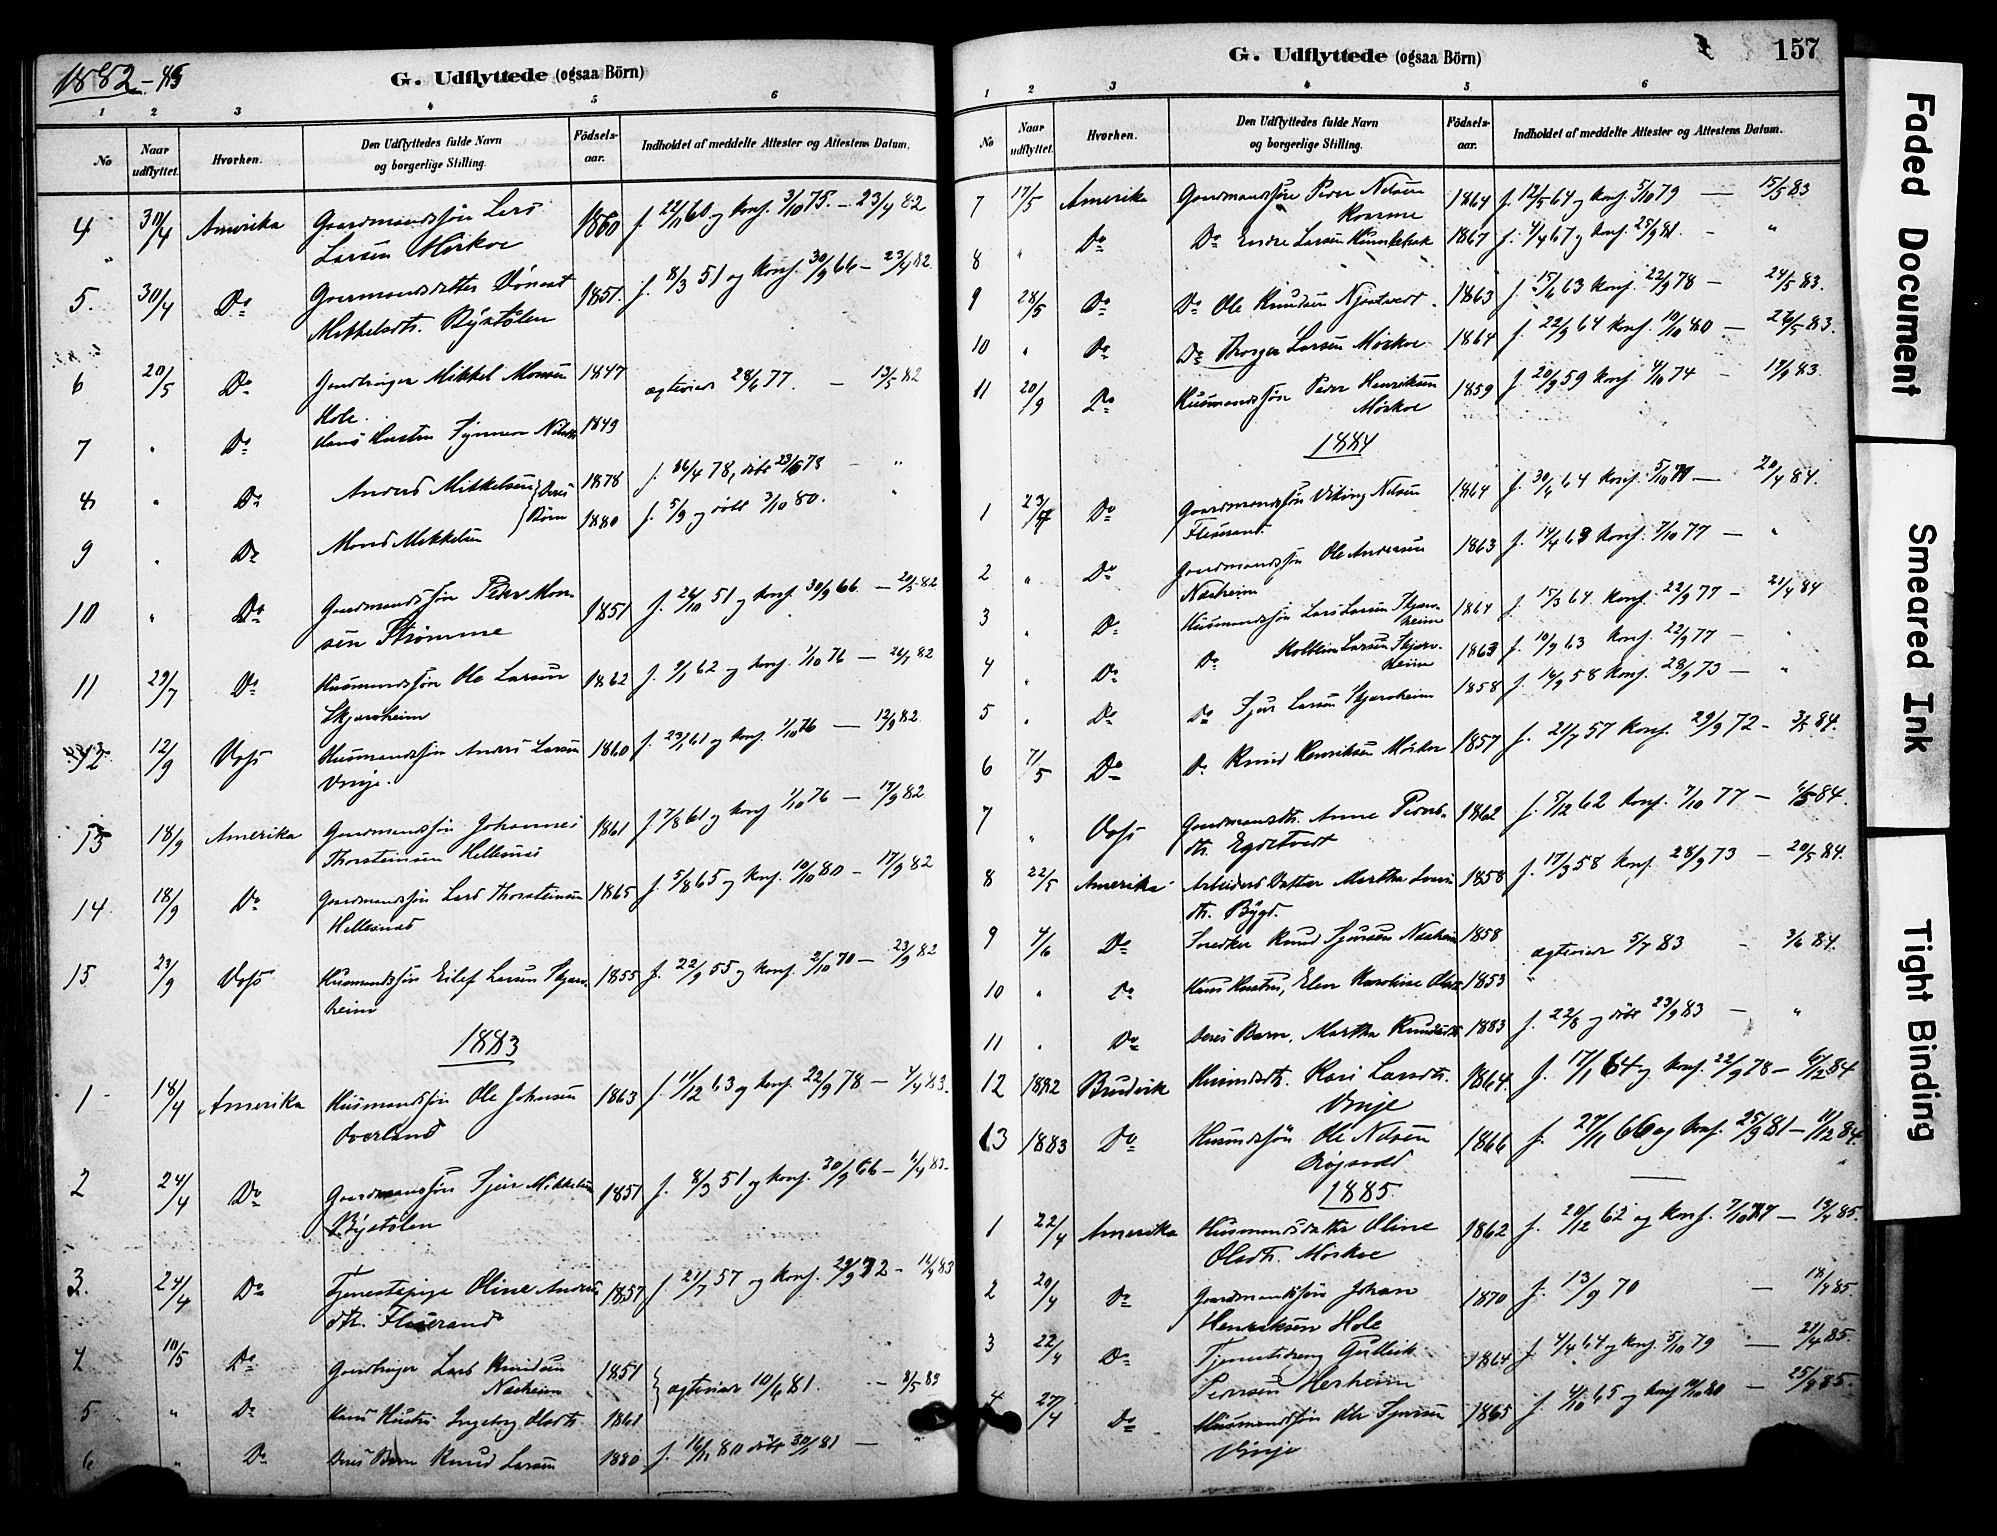 1882-85
G. Udflyttede (ogsaa Börn)
1 2 3 4 5 6
No Naar udflyttet. Hvorhen. Den Udflyttedes fulde Navn og borgerlige Stilling. Födsels-aar. Indholdet af meddelte Attester og Attestens Datum.
4 30/4 Amerika Gaardmandssøn Lars 1860 f. 22/11 60 og konf. 3/10 75. - 23/4 82
Larsen Mörkve
5. 30/4 Do Mikkelsdtr. Bystølen 1851. f. 8/3 51 og konf. 30/9 66 - 23/4 82
6 20/5 Do Gaardbruger Mikkel Monsen 1847 ægteviede 28/6 77. - 13/5 82
Hole
7 " Do Hans Hustru Nilsdtr 1849
8 " Do Anders Mikkelsen } Deres 1878 f. 26/4 78, døbt - "
9 " Do Mons Mikkelsen } Børn 1880 f. 5/9 og døbt 3/10 80. "
10 " Do Gaardmandssøn Peder Mon- 1851 f. 26/10 51 og konf. 30/9 66 - 20/5 82
sen Strømme
11 29/7 Do Husmandssøn Ole Larsen 1862 f. 9/1 62 og konf. 1/10 76 - 26/7 82
Skjerveheim
12 12/9 Voss Husmandssøn Anders Larsen 1860 f. 23/1 61 og konf. 1/10 76 - 12/9 82
Vinje.
13 18/9 Amerika Gaardmandssøn Johannes 1861 f. 7/8 61 og konf 1/10 76 - 17/9 82
Thorsteinsen Hellesnes
14 18/9 Do Gaardmandssøn Lars Thorsteinsen 1865 f. 5/8 65 og konf. 10/10 80 - 17/9 82
Hellesnes
15 23/9 Voss Husmandssøn Eilef Larsen Skjerve- 1855 f. 22/9 55 og konf. 2/10 70 - 23/9 82
heim
1883
1 18/4 Amerika Husmandssøn Ole Johnsen 1863 f. 11/12 63 og konf. 22/9 78 - 4/4 83.
Øverland
2 24/4 Do Gaardmandssøn Sjur Mikkelsen 1851 f. 8/3 51 og konf. 30/9 66 -
Bystølen
3. 24/4 Do Tjenestepige Oline Anders 1857 f. 21/7 57 og konf. 29/9 72 -
dtr. Flisarand
4 10/5 Do Gaardbruger Lars Knudsen 1851 } ægteviede 10/6 81. - 8/5 83
Næsheim
5 " Do Hans Hustru Ingeborg Olsdtr 1861
6 " Do Deres Barn Knud Larsen 1880
G. Udflyttede (ogsaa Börn)
157
1 2 3 4 5 6
No Naar udflyttet. Hvorhen. Den Udflyttedes fulde Navn og borgerlige Stilling. Födsels-aar. Indholdet af meddelte Attester og Attestens Datum.
7 17/5 Amerika Gaardmandssøn Peder Nilsen 1864 f. 12/5 64 og konf. 5/10 79 - 15/5 83
8 " Do Do Endre Larsen 1867 f. 4/4 67 og konf. 25/9 81. - "
9 28/5 Do Do Ole Knudsen 1863 f. 15/6 63 konf. 22/9 78 - 24/5 83.
10 " Do Do Larsen Mörkve 1864 f. 22/9 64 konf. 10/10 80 - 26/5 83.
11 20/9 Do Husmandssøn Peder Henriksen 1859 f. 20/9 59 konf. 4/10 74 - 17/9 83.
Mörkve
1884
1 23/4 Do Gaardmandssøn Viking Nilsen 1864 f. 30/4 64 konf. - 20/4 84.
2 " Do Gaardmandssøn Ole Andersen 1863 f. 14/4 63 konf. 7/10 77 - "
Næsheim
3 " Do Husmandssøn Lars Larsen Skjerve- 1864 f. 15/3 64. konf. 22/9 77 - 21/4 84
heim
4 " Do Do Larsen Skjerve- 1863 f. 10/9 63 konf. 22/9 77 - "
heim
5 " Do Do Sjur Larsen Skjerveheim 1858 f. 16/9 58 konf. 28/9 73 - "
6 7/5 Do Do Knud Henriksen Mörkve 1857 f. 21/7 57 konf. 29/9 72 - 3/5 84.
7 " Voss Gaardmandsdtr. Anne Peders- 1862 f. 5/12 62 konf. 7/10 77 -
dtr. Egdetveit
8 22/5 Amerika Arbeiders Datter Martha Lars 1858 f. 17/3 58 konf. 28/9 73 - 20/5 84.
dtr. Bygd.
9 4/6 Do Snedker Knud Sjursen Næsheim 1858 ægteviede 5/7 83 - 3/6 84.
10 " Do Hans Hustru, Elen Karoline Olsdtr 1853 "
11 " Do Deres Barn, Martha Knudsdtr 1883 f. 22/8 og døbt 23/9 83 - "
12 1882 Bruvik Husmdsdtr. Kari Larsdtr. 1864 f. 17/1 64 og konf. 22/9 78 - 6/12 84
Vinje
13 1883 Do Husmdssøn Ole Nilsen 1866 f. 27/11 66 og konf. 25/9 81 - 11/12 84.
1885.
1 22/4 Amerika Husmandsdatter Oline 1862 f. 20/12 62 og konf. 7/10 77 - 13/4 85.
Olsdtr. Mörkve
2 29/4 Do Gaardmandssøn Johan 1870 f. 13/9 70 - 18/4 85.
Henriksen Hole
3 22/4 Do Tjenestedreng Gullik 1864 f. 4/4 64 og konf. 5/10 79 - 21/4 85.
Pedersen Herheim
4 27/4 Do Husmandssøn Ole Sjursen 1865 f. 4/10 65 og konf. 10/10 80 - 25/4 85.
Vinje
Faded Document
Smeared Ink
Tight Binding